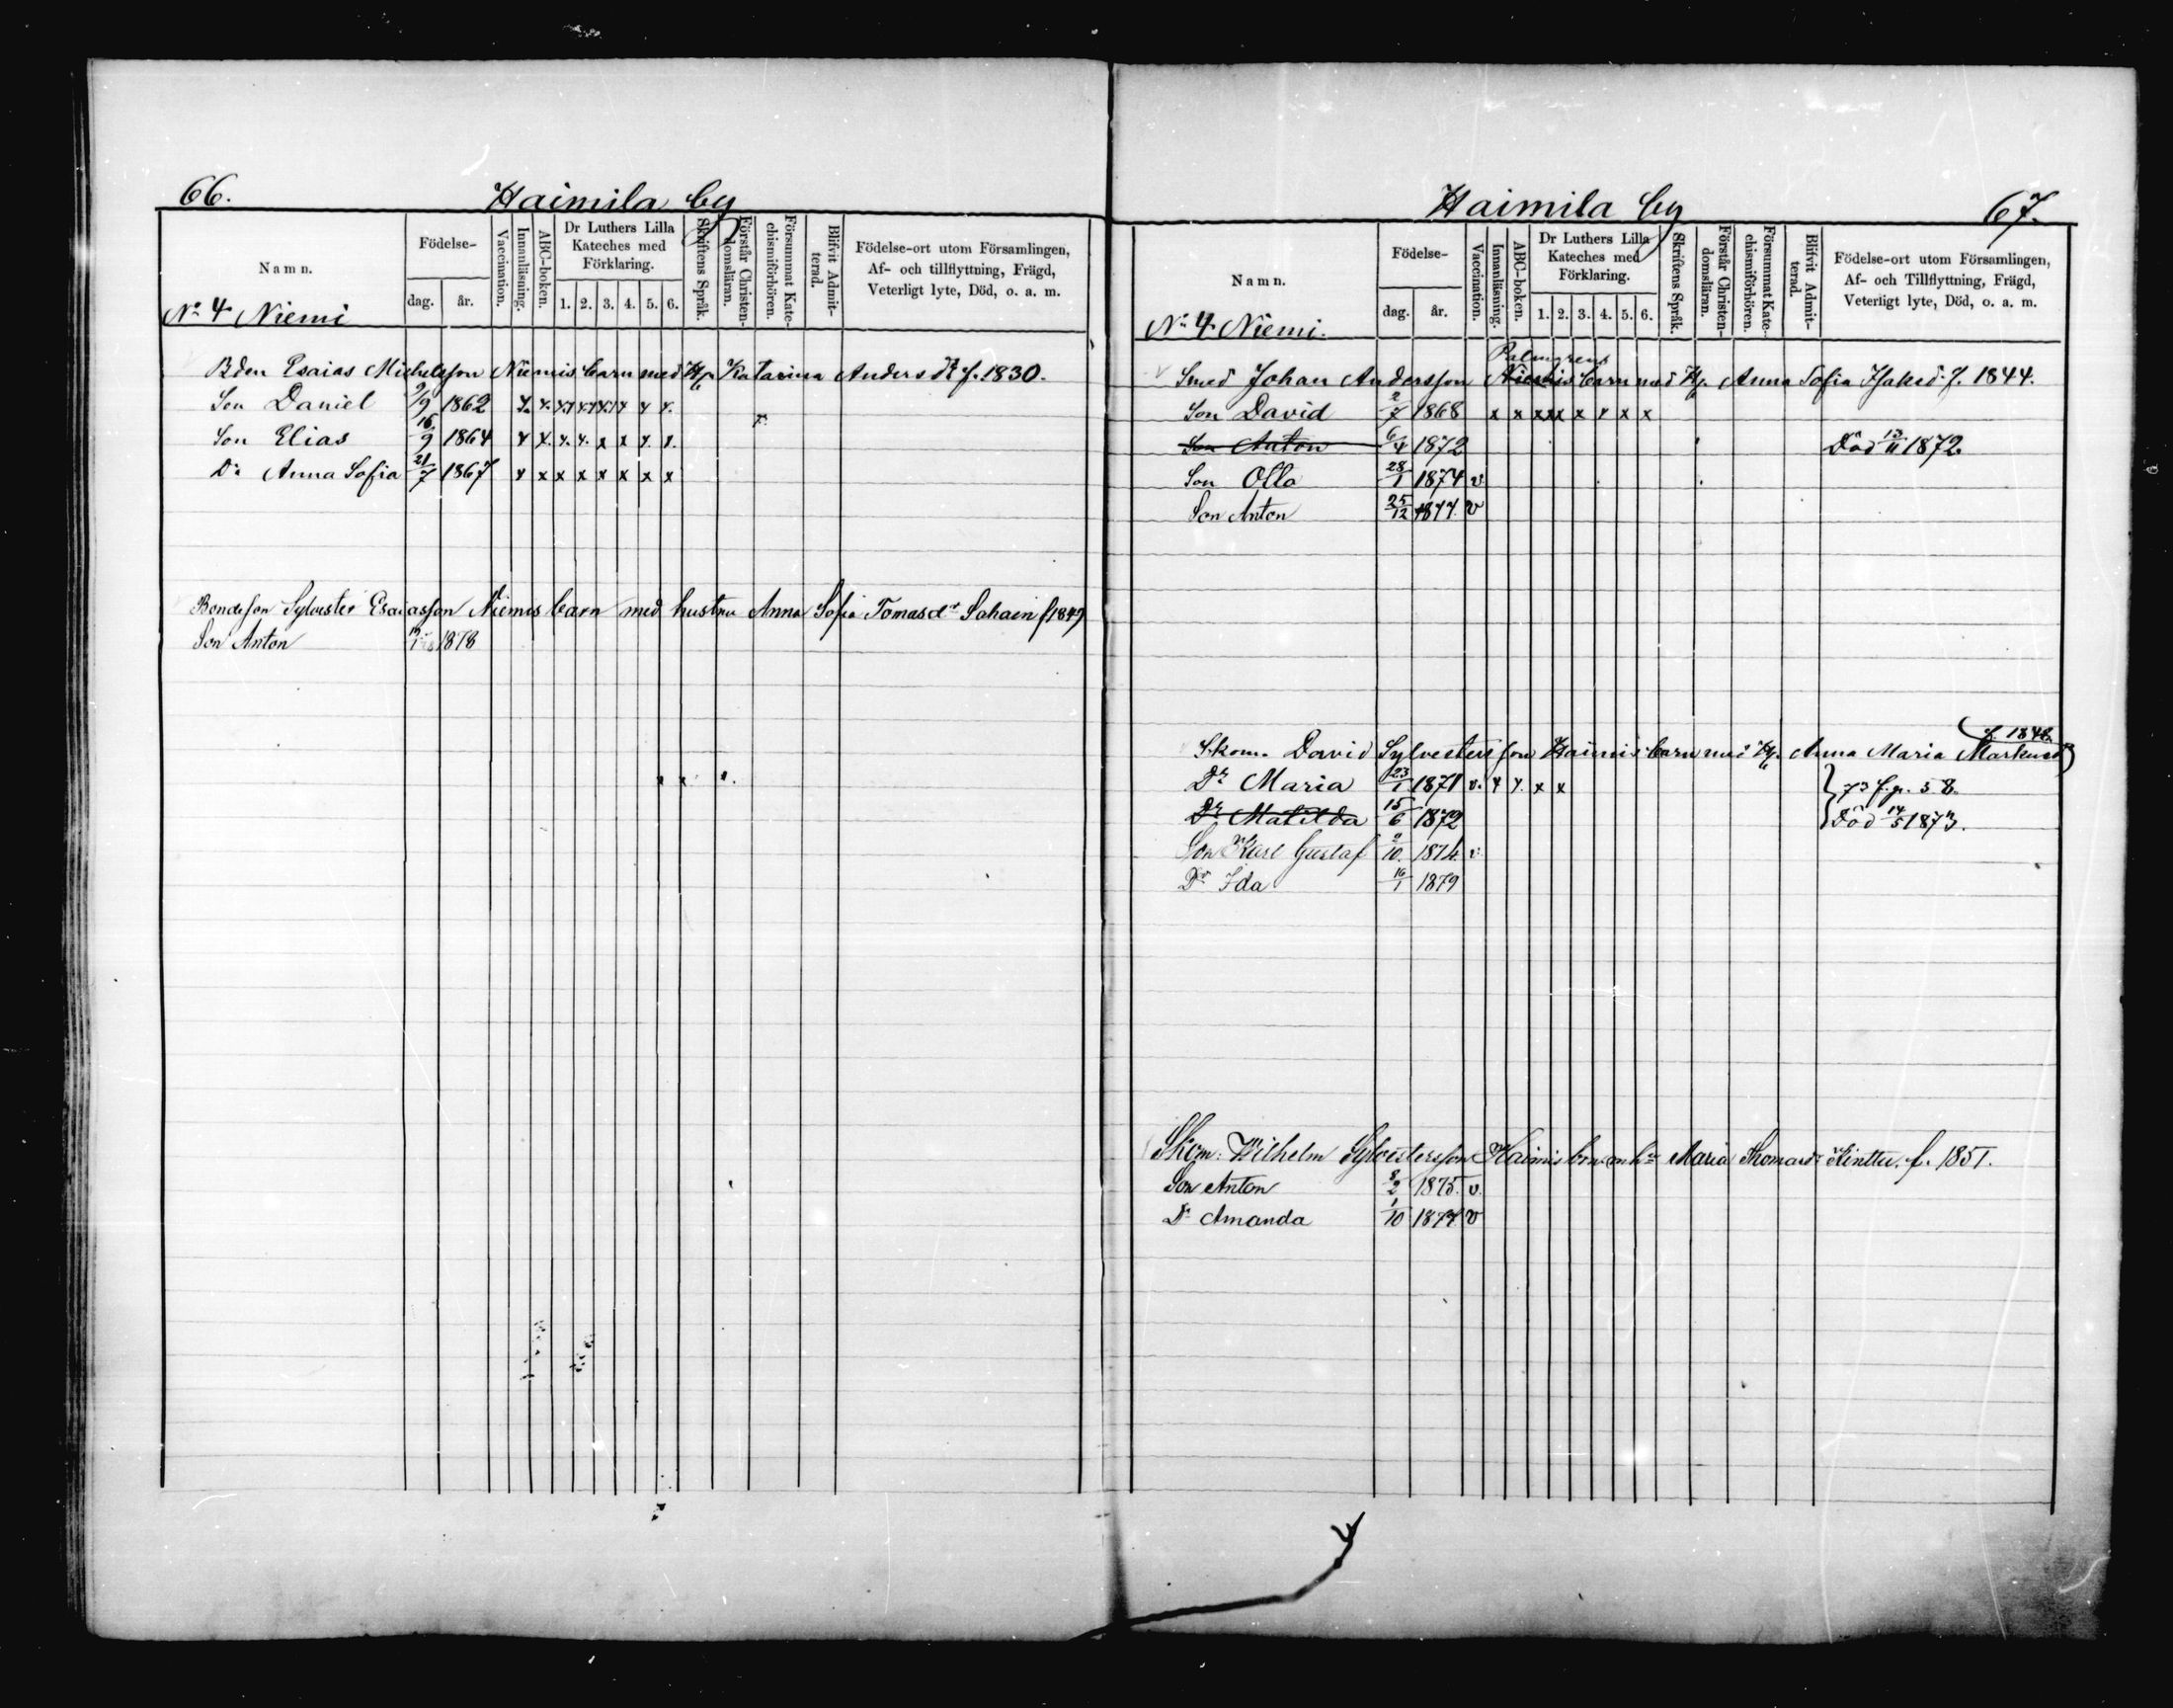 66.
Haimila by
Namn.
Födelse-
dag. år.
Vaccination.
Innanläsning.
ABC-boken.
Dr Luthers Lilla Kateches med Förklaring.
1. 2. 3. 4. 5. 6.
Skriftens Språk.
Förstår Christendomsläran.
Försummat Katechismiförhören.
Blifvit Admitterad.
Födelse-ort utom Församlingen,
Af- och tillflyttning, Frägd,
Veterligt lyte, Död, o. a. m.
No 4 Niemi
Bden Esaias Michelsson Niemis barn med Hu Katarina Andersdr f. 1830.
Son Daniel 9/9 1862
Son Elias 16/9 1864
Dr Anna Sofia 21/7 1867
Bondeson Sylvester Esaiasson Niemis barn med hustru Anna Sofia Tomasdr Sahain f 1849
Son Anton 1878
Haimila by
67.
Namn.
Födelse-
dag. år.
Vaccination.
Innanläsning.
ABC-boken.
Dr Luthers Lilla Kateches med Förklaring.
1. 2. 3. 4. 5. 6.
Skriftens Språk.
Förstår Christendomsläran.
Försummat Katechismiförhören.
Blifvit Admitterad.
Födelse-ort utom Församlingen,
Af- och Tillflyttning, Frägd,
Veterligt lyte, Död, o. a. m.
No 4 Niemi.
Palmgrens
Smed Johan Andersson Niemis barn med Hu Anna Sofia Isaksd. f. 1844.
Son David 2/7 1868 x x x x x x x x x
Son Anton 6/4 1872 Död 13/11 1872.
Son Olla 28/1 1874 v
Son Anton 25/12 1877. v
f. 1848.
Skom. David Sylvestersson Haimis barn med Hu Anna Maria Markusd
Dr Maria 23/1 1871 v. 73 f. p. 58.
Dr Matilda 15/6 1872 Död 14/5 1873.
Son Karl Gustaf 9/10. 1874. v.
Dr Ida 16/1 1879
Skom: Wilhelm Sylvestersson Haimis brn m hu Maria Thomasdr f. 1851.
Son Anton 8/2 1875. v.
Dr Amanda 1/10 1877 v